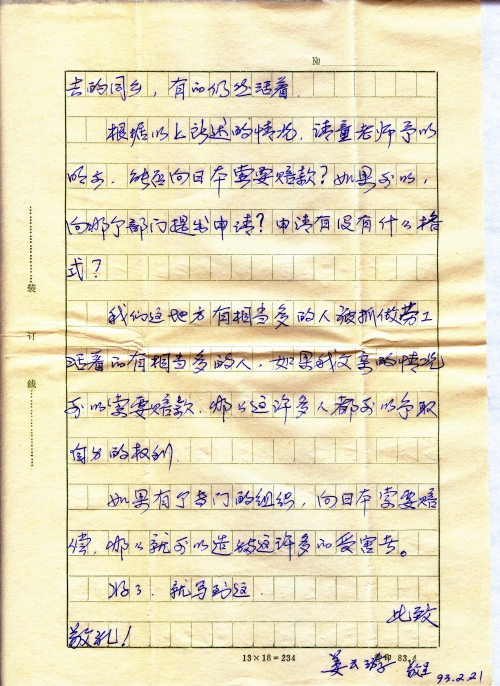 №
去的同乡，有的仍然活着.
根据以上所述的情况，请童老师予以
明示，能否向日本索要赔款？如果可以，
向哪个部门提出申请？申请有没有什么格
式？
我们这地方有相当多的人被抓做劳工
活着的有相当多的人，如果我父亲的情况
可以索要赔款，那么这许多人都可以争取
自己的权利
如果有个专门的组织，向日本索要赔
偿，那么就可以造福这许多的受害者。
好了，就写到这.
此致
敬礼！
13×18=234
印 83.4
姜 敬上
93.2.21
装
订
线